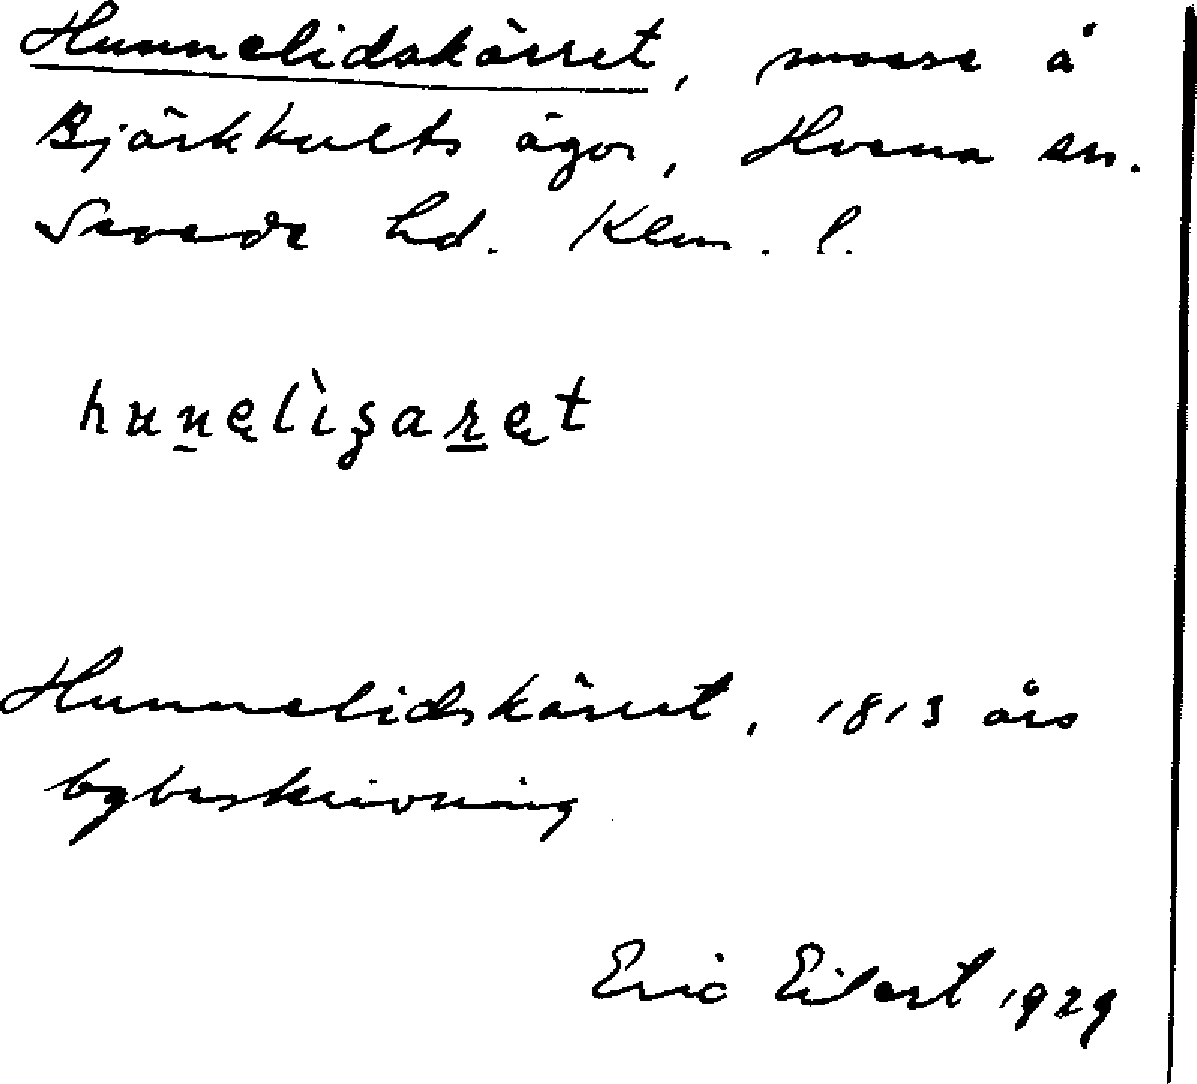 Hunnelidskärret, mosse å
Björkhults ägor, Hvena sn.
Sevede hd. Klm. l.
Hunnelidskärret, 1813 års
bybeskrivning
Eric Eilert 1929